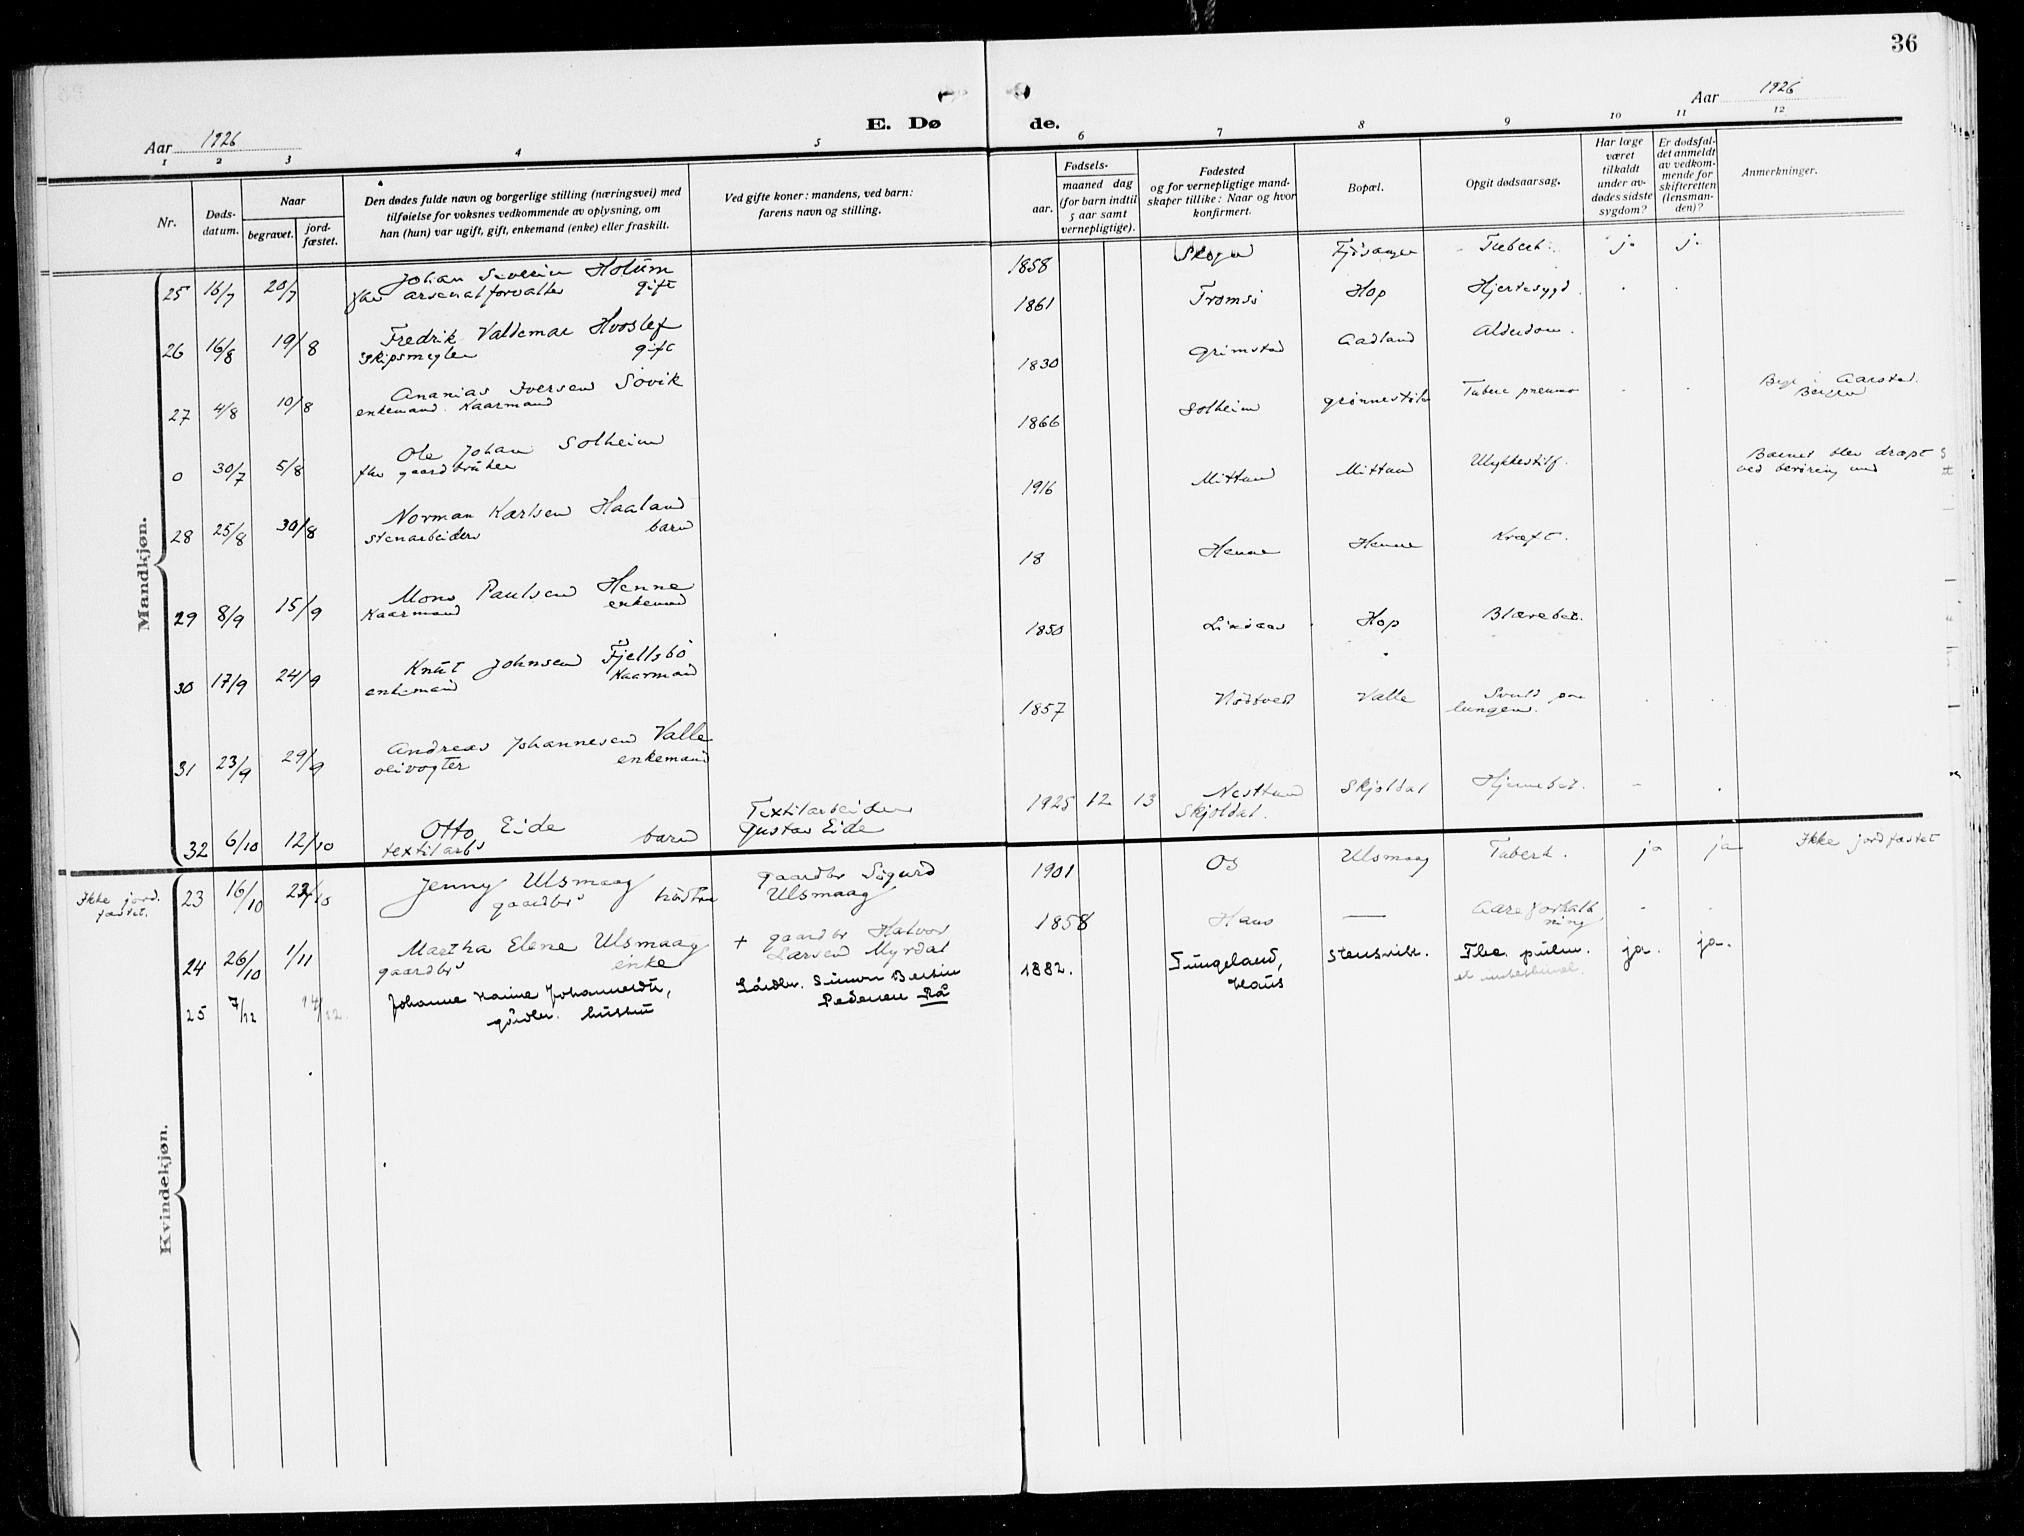 36
Aar 1926
E. Døde.
Aar 1926
1 2 3 4 5 6 7 8 9 10 11 12
Nr.
Døds-
datum.
Naar
begravet.
jord-
fæstet.
Den dødes fulde navn og borgerlige stilling (næringsvei) med
tilføielse for voksnes vedkommende av oplysning, om
han (hun) var ugift, gift, enkemand (enke) eller fraskilt.
Ved gifte koner: mandens, ved barn:
farens navn og stilling.
Fødsels-
aar.
maaned dag
(for barn indtil
5 aar samt
vernepligtige).
Fødested
og for vernepligtige mand-
skaper tillike: Naar og hvor
konfirmert.
Bopæl.
Opgit dødsaarsag.
Har læge
været
tilkaldt
under av-
dødes sidste
sygdom?
Er dødsfal-
det anmeldt
av vedkom-
mende for
skifteretten
(lensman-
den)?
Anmerkninger.
Mandkjøn.
25 16/7 20/7 Johan Severin Holum 1858 Fjøsanger
arsenalforvalter gift
26 16/8 19/8 Fredrik Valdemar Hvoslef 1861 Tromsø Hop Hjertesygd.
Skipsmegler gift
27 4/8 10/8 Ananias Iversen Søvik 1830 Grimstad Aadland Alderdom.
enkemand. Kaarmand
0 30/7 5/8 Ole Johan Solheim 1866 Solheim Aarstad.
gaardbruker Bergen
28 25/8 30/8 Norman Karlsen Haaland 1916 Mittun Mittun Ulykkestilf. Barnet blev dræpt
stenarbeiders barn ved berøring med
29 8/9 15/9 Mons Paulsen Henne 18 Henne Henne Kræft.
Kaarmand enkemand
30 17/9 24/9 Knut Johnsen Fjellsbø 1850 Lindaas Hop Blærebet.
enkemand Kaarmand
31 23/9 29/9 Andreas Johannesen Valle 1857 Valle Svulst paa
enkemand lungen.
32 6/10 12/10 Otto Eide Textilarbeider 1925 12 13 Nesttun Skjoldal Hjernebet.
textilarb. barn Gustav Eide Skjoldal.
Kvindekjøn.
Ikke jord-
fæstet.
23 16/10 Jenny Ulsmaag gaardbr Sigurd 1901 Os Ulsmaag Tuberk. ja ja Ikke jordfæstet
gaardbrs hustru Ulsmaag
24 26/10 1/11 Martha Elene Ulsmaag + gaardbr Halvor 1858 Haus — Aareforkalk
gaardbrs enke Larsen Myrdal ning
25 7/12 14/12. Johanne Johannesdtr, Simon Bertin 1882. Tungeland, Stensvik. Tbc. pulm. ja. ja.
gårdbr. hustru Pedersen Rå Haus et intestinal.